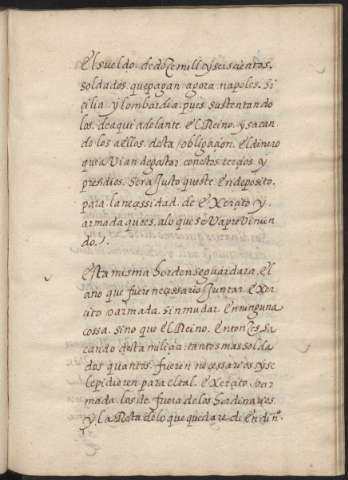 El sueldo de doze mill y seiscientos
soldados que pagan agora napoles. Si
çilia y lombardia pues sustentando
los. de aqui adelante el Reino. y sacan
do los a ellos desta obligaçion. el dinero
que avian de gastar con estos terçios y
presidios. sera justo queste En deposito
para la neçessidad de exerçito y
armada que es. a lo que se va prevenien
do.
Esta misma horden se guardara El
año que fuere necessario juntar exer
cito o armada. sin mudar En ninguna
cossa. sino que el Reino. Entonces sa
cando desta miliçia. tantos mas solda
dos quantos. fueren necessarios y se
le pidieren para el tal. exerçito. o ar
mada. los de fuera de los hordinarios
y la Resta de lo que quedare de En din.º